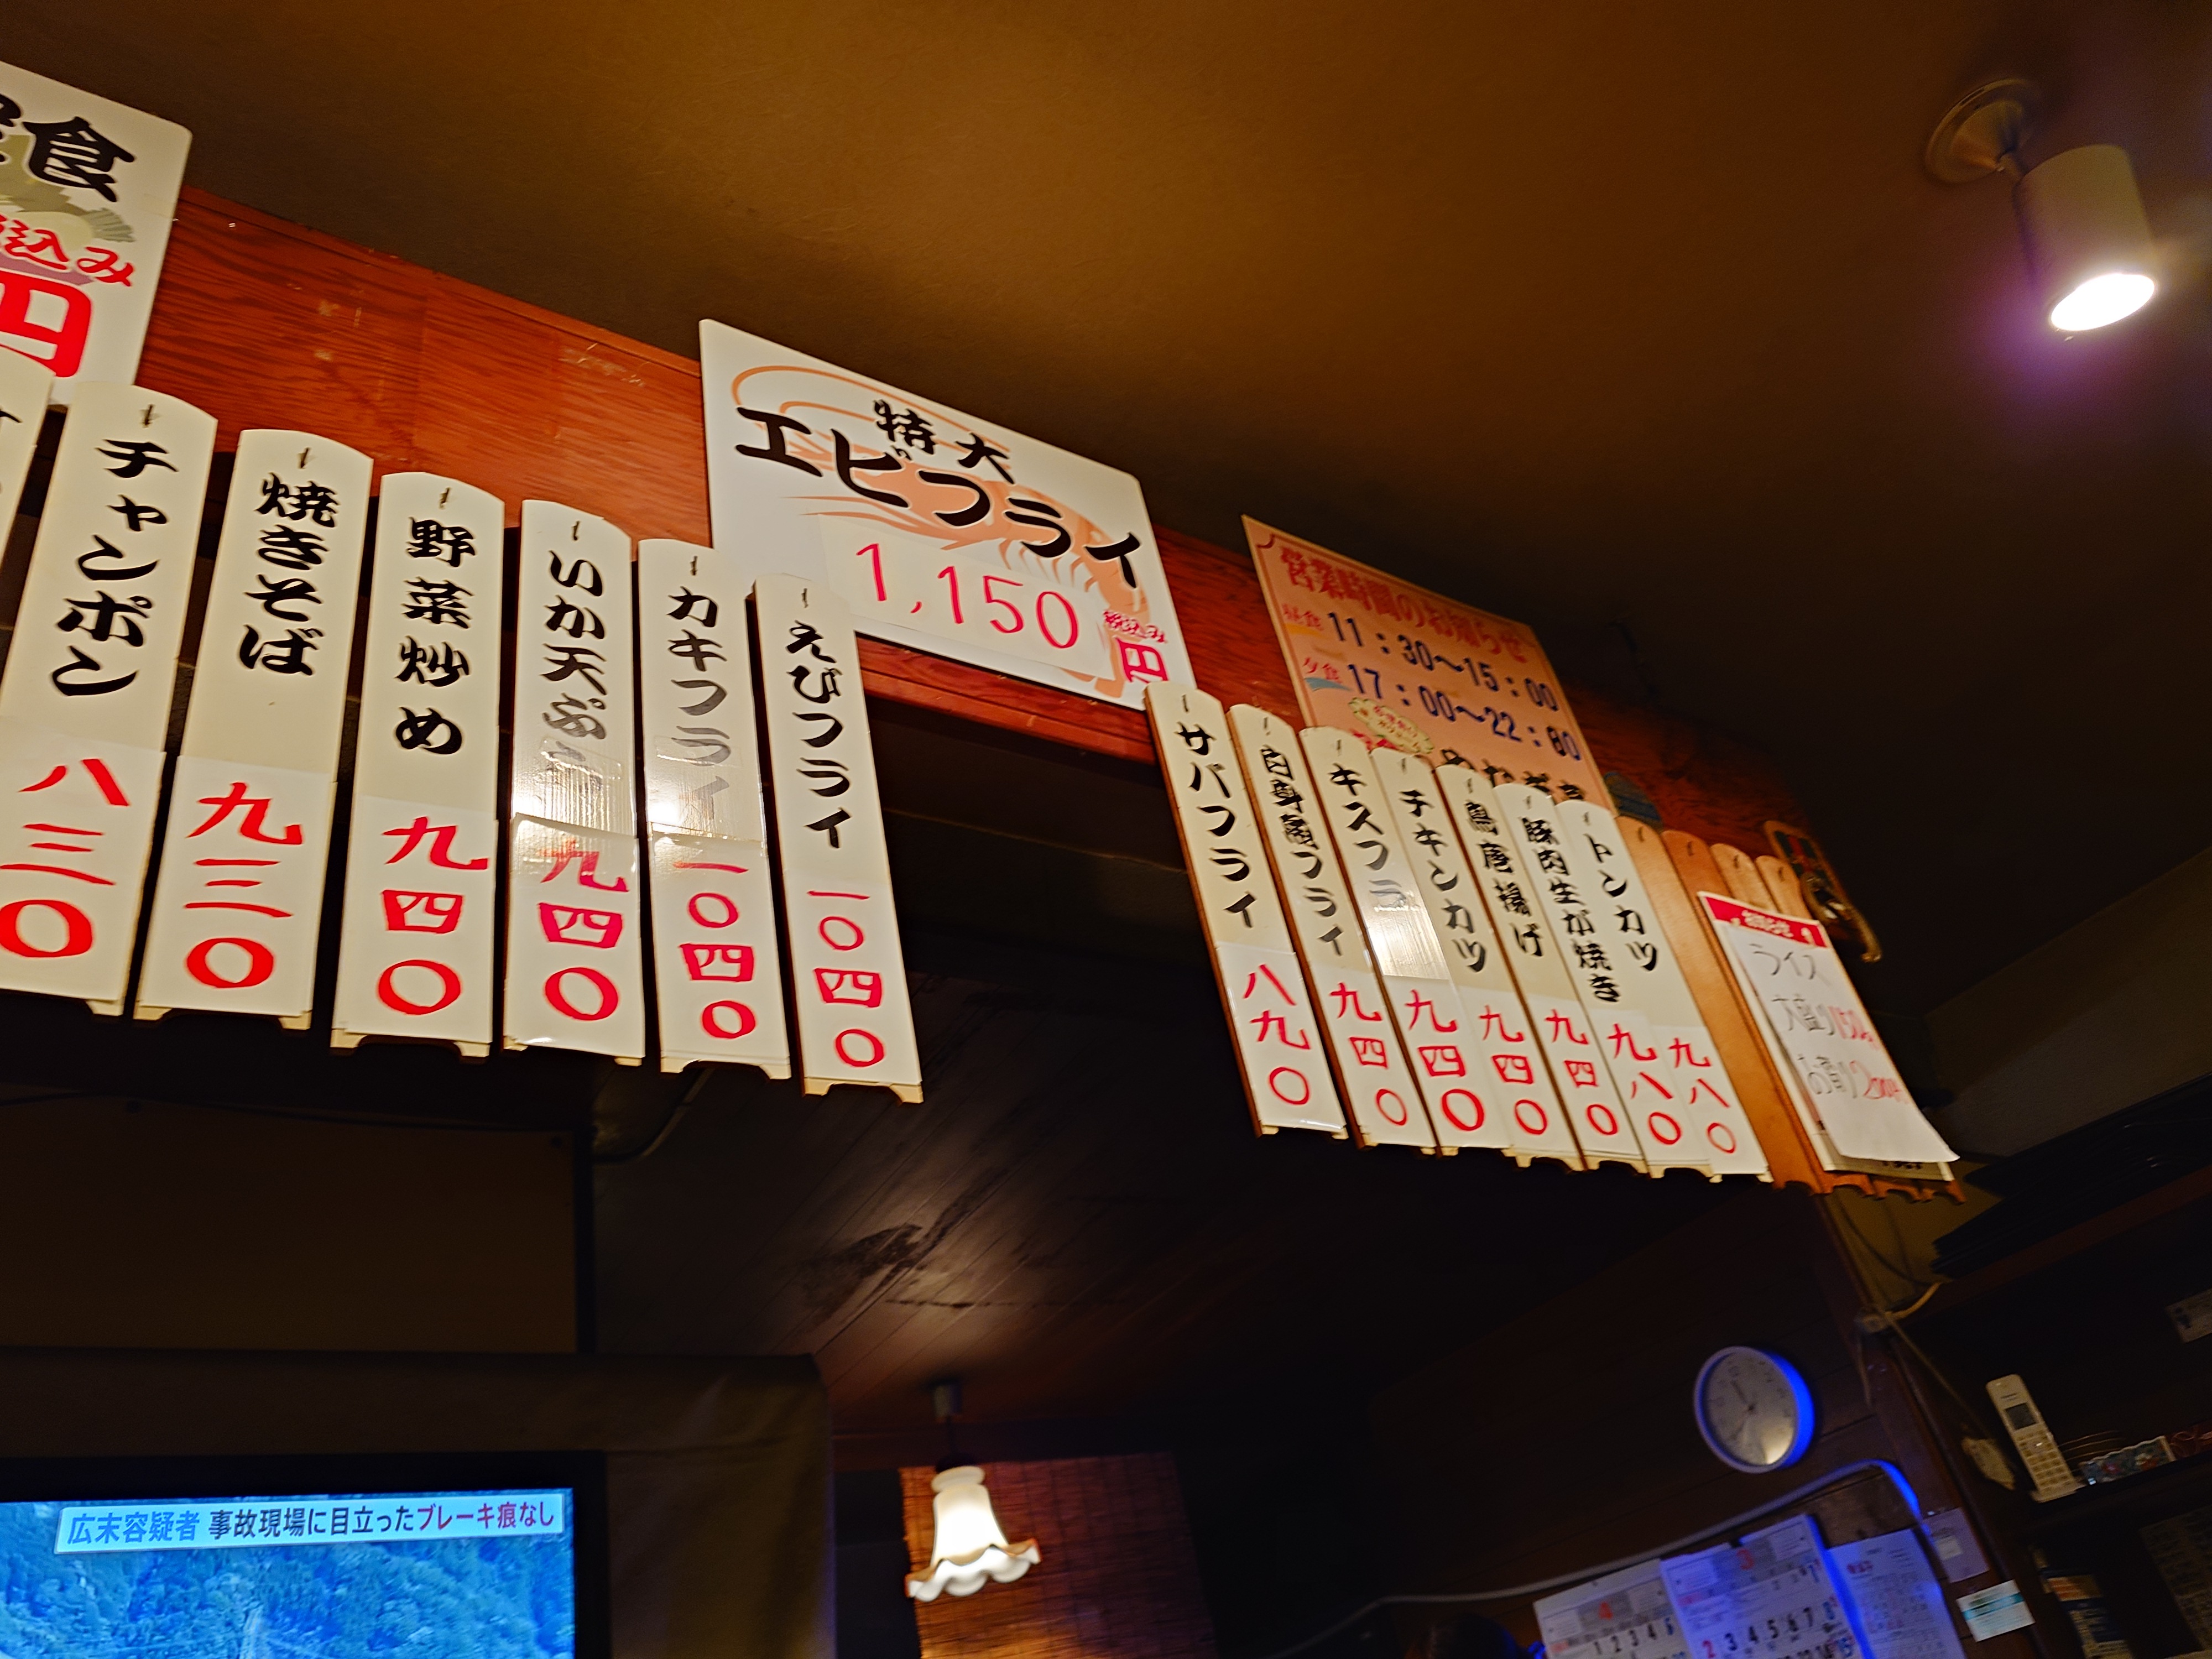 食
込み
円
チャンポン 八三〇
焼きそば 九三〇
野菜炒め 九四〇
いか天ぷ 九四〇
カキフライ 一〇四〇
えびフライ 一〇四〇
特大
エビフライ
1,150
税込み
円
営業時間のお知らせ
昼食 11:30～15:00
夕食 17:00～22:00
サバフライ 八九〇
白身魚フライ 九四〇
キスフラ 九四〇
チキンカツ 九四〇
鳥唐揚げ 九四〇
豚肉生が焼き 九八〇
トンカツ 九八〇
お知らせ
ライス
大盛り150
お替り200円
広末容疑者 事故現場に目立ったブレーキ痕なし
4
1 2 3 4 5
3
1
2 3 4 5 6 7 8